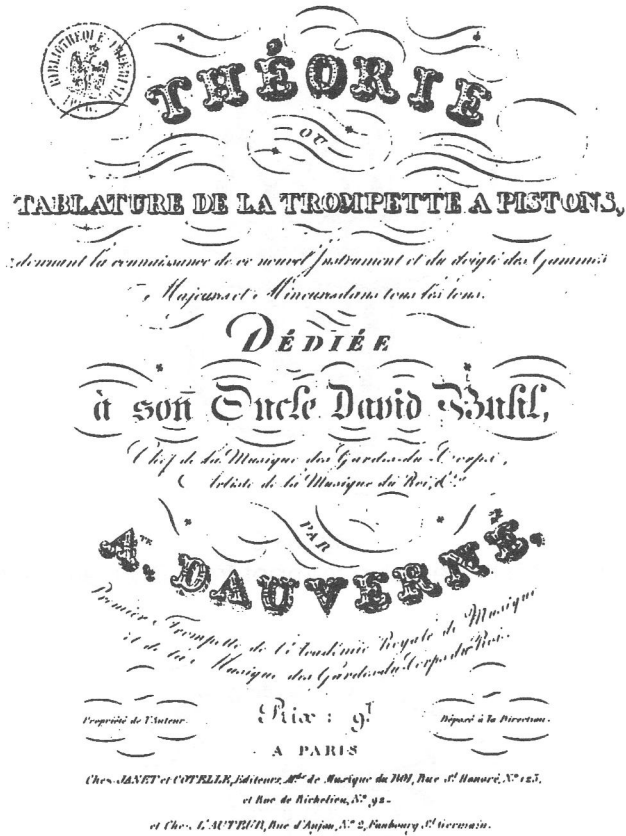 BIBLIOTHEQUE IMPÉRIALE
THÉORIE
OU
TABLATURE DE LA TROMPETTE A PISTONS,
donnant la connaissance de ce nouvel Instrument et du doigté des Gammes
Majeurs et Mineurs dans tous les tons.
DÉDIÉE
à son Oncle David Buhl,
Chef de la Musique des Gardes-du-Corps,
Artiste de la Musique du Roi, &ca
PAR
A.TE DAUVERNÉ.
Premier Trompette de l'Académie Royale de Musique
et de la Musique des Gardes du Corps du Roi.
Propriété de l'Auteur.
Prix : 9f
Déposé à la Direction.
A PARIS
Chez JANET et COTELLE, Editeurs, Mds de Musique du ROI, Rue St Honoré, No 123,
et Rue de Richelieu, No 92.
et Chez L'AUTEUR, Rue d'Anjou, No 2, Faubourg St Germain.